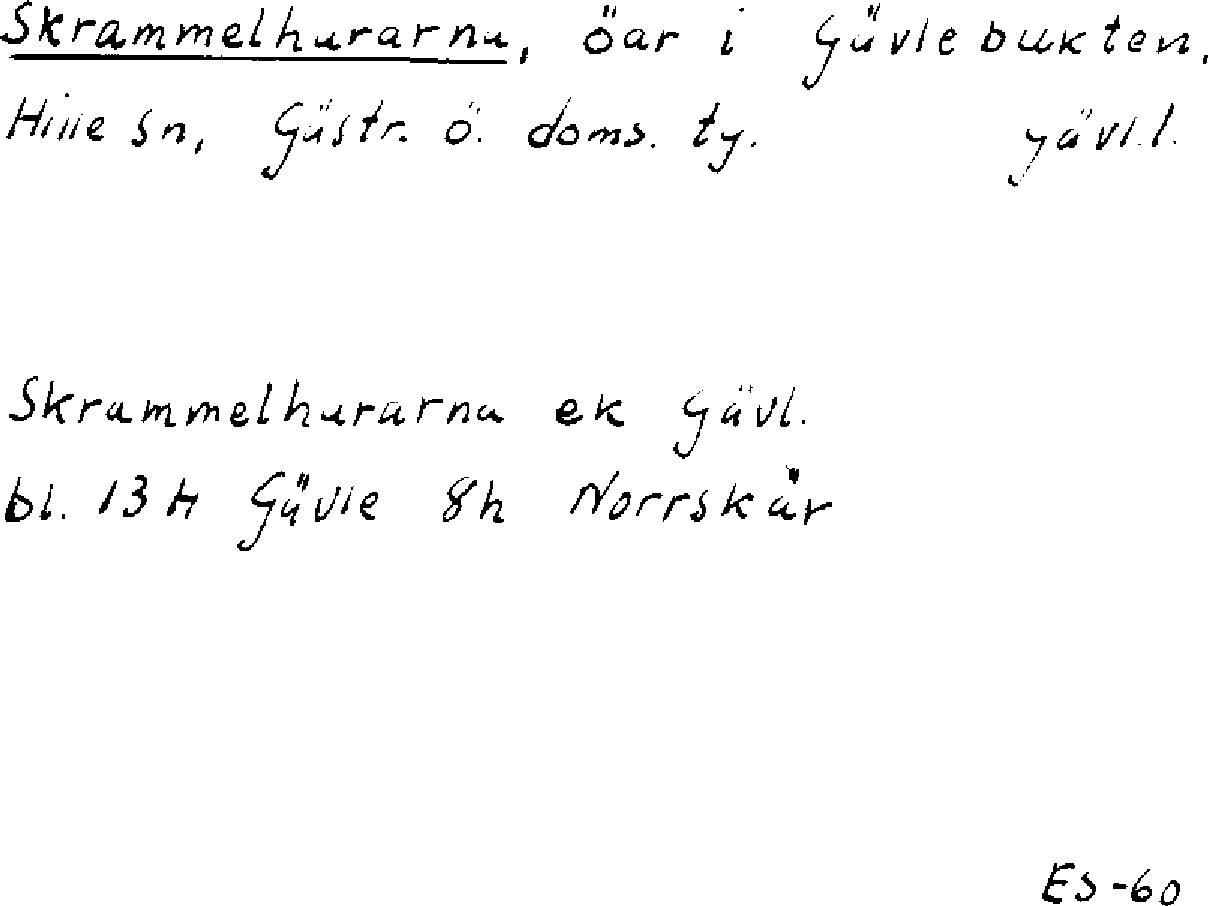 Skrammelhararna, öar i Gävlebukten,
Hille sn, Gästr. ö. doms. ty. gävl.l.
Skrammelhararna ek Gävl.
bl. 13 H Gävle 8h Norrskär
ES-60